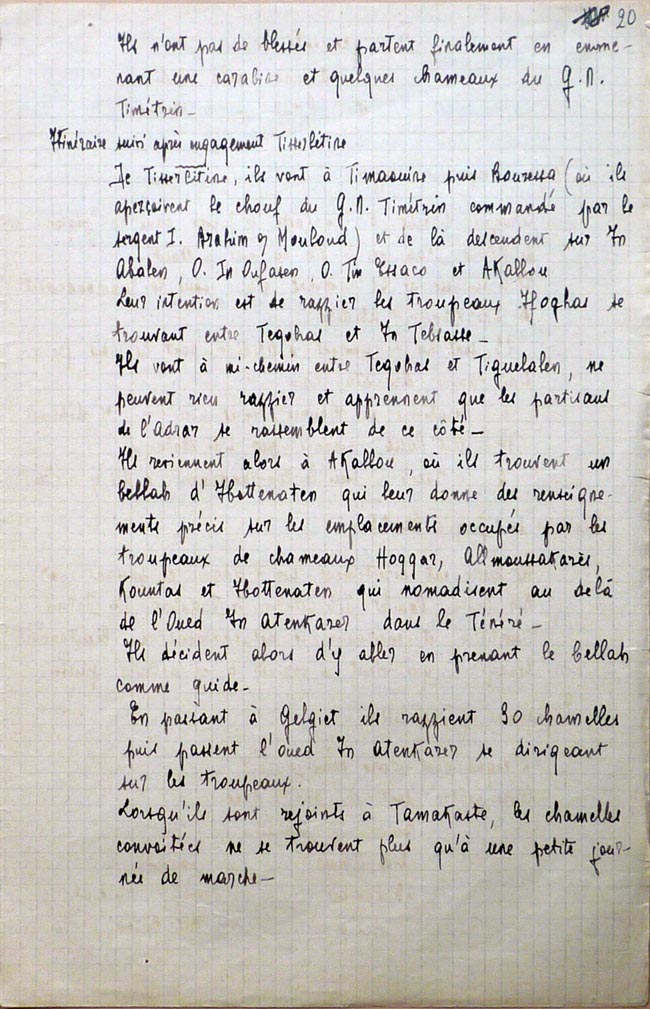 20
Ils n'ont pas de blessés et partent finalement en emme-
nant une carabine et quelques chameaux du G.N.
Timétrin_
Itinéraire suivi après engagement Tisserlitine
De Tisserlitine, ils vont à Timaouine puis Bouressa (où ils
aperçoivent le chouf du G.N. Timétrin commandé par le
sergent I. Arahim og Mouloud) et de là descendent sur In
Abalen, O. In Oufasen, O. Tin Essaco et AKallou
Leur intention est de razzier les troupeaux Ifoghas se
trouvant entre Tegohas et In Tebsasse_
Ils vont à mi-chemin entre Tegohas et Tiguelalen, ne
peuvent rien razzier et apprennent que les partisans
de l'Adrar se rassemblent de ce côté_
Ils reviennent alors à AKallou, où ils trouvent un
bellah d'Ibottenaten qui leur donne des renseigne-
ments précis sur les emplacements occupés par les
troupeaux de chameaux Hoggar, Allmoussakarès,
Kountas et Ibottenaten qui nomadisent au delà
de l'Oued In AtenKarer dans le Ténéré_
Ils décident alors d'y aller en prenant le bellah
comme guide_
En passant à Gelgiet ils razzient 30 chamelles
puis passent l'oued In AtenKarer se dirigeant
sur les troupeaux.
Lorsqu'ils sont rejoints à TamaKaste, les chamelles
convoitées ne se trouvent plus qu'à une petite jour-
née de marche_